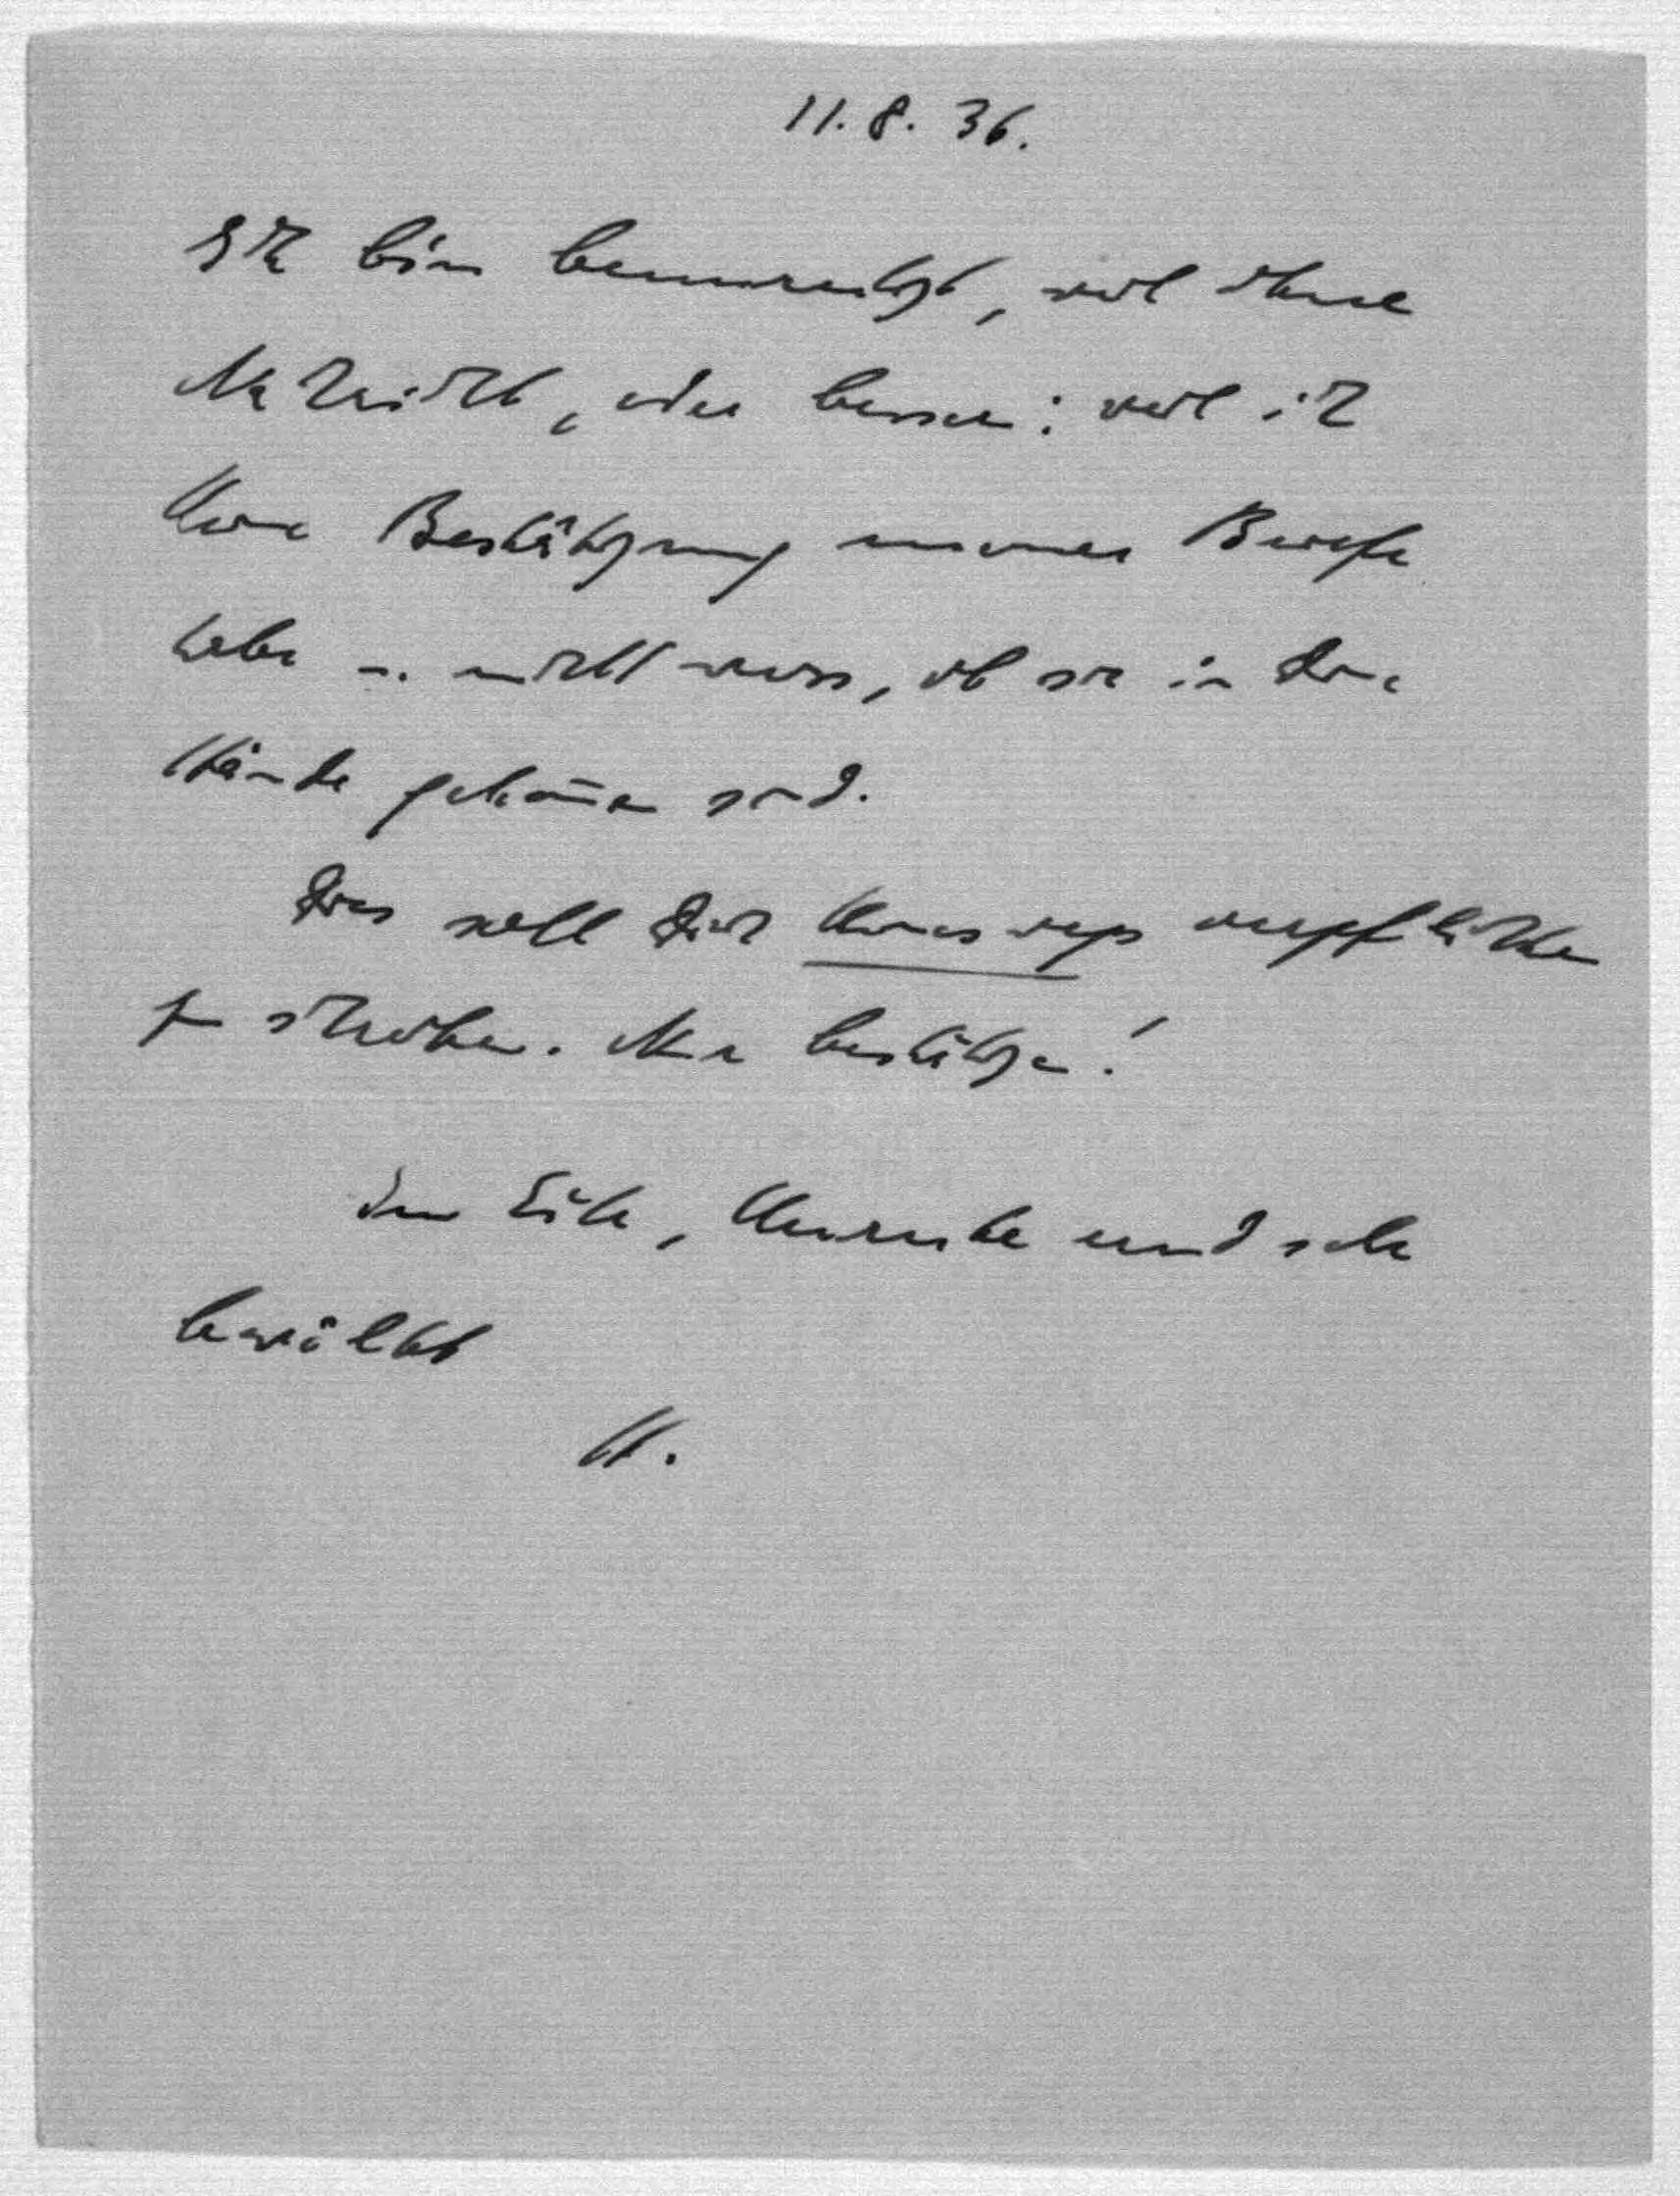 11. 8. 36.
Ich bin beunruhigt, weil ohne
Nachricht, oder besser: weil ich
keine Bestätigung meiner Briefe
habe u. nicht weiss, ob sie in Deine
Hände gekom̄en sind.
Dies soll Dich keineswegs verpflichten
zu schreiben. Nur bestätigen!
In Eile, Unruhe und sehr
bewölkt
H.